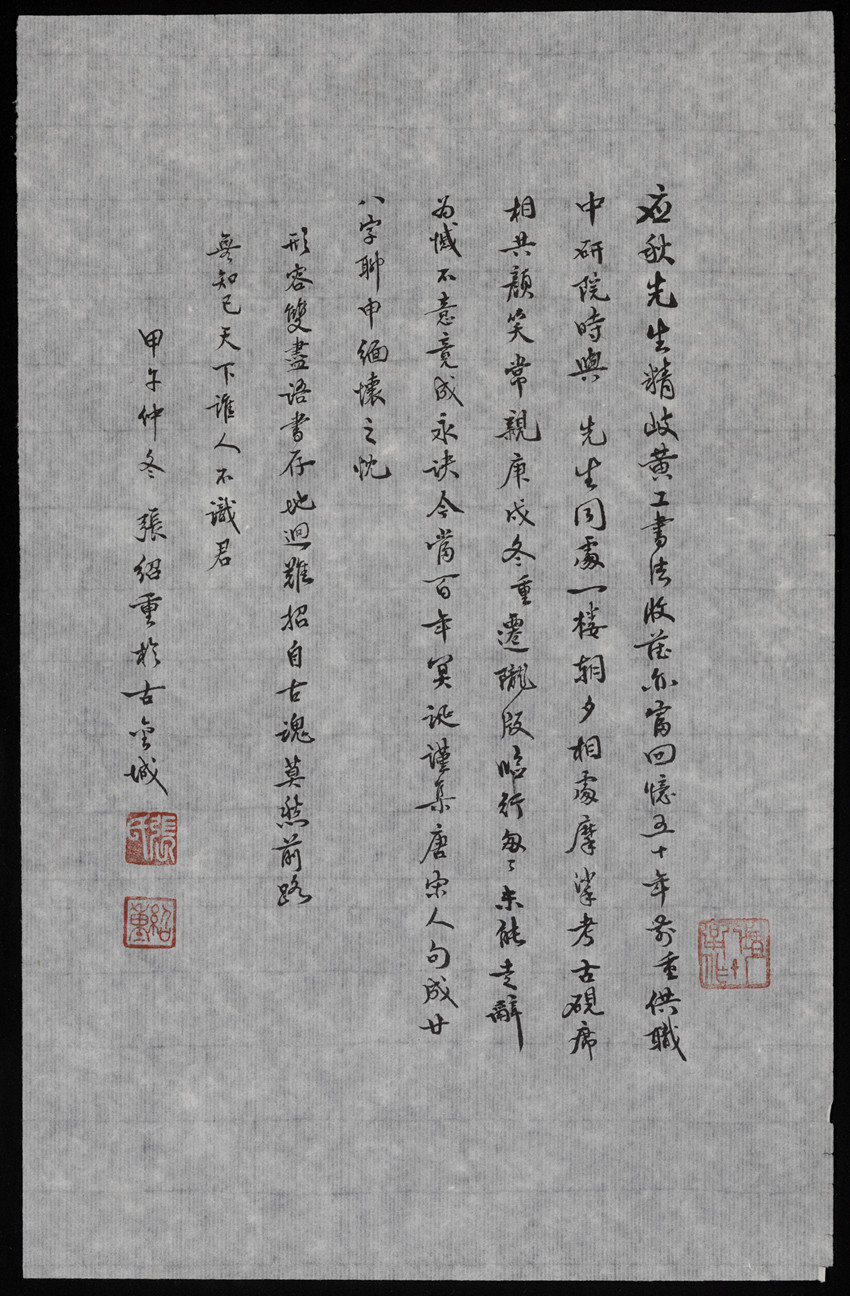 应秋先生精岐黄工书法收藏亦富回憶五十年前重供職
中研院時與 先生同處一楼朝夕相處摩挲考古硯席
相共顏笑常親庚戌冬重遷隴阪臨行匆匆未能走辭
为憾不意竟成永诀今當百年冥诞謹集唐宋人句成廿
八字聊申緬懷之忱
形容雙盡语書存地迥難招自古魂莫愁前路
無知己天下誰人不識君
甲午仲冬 張紹重於古金城
張氏
紹重